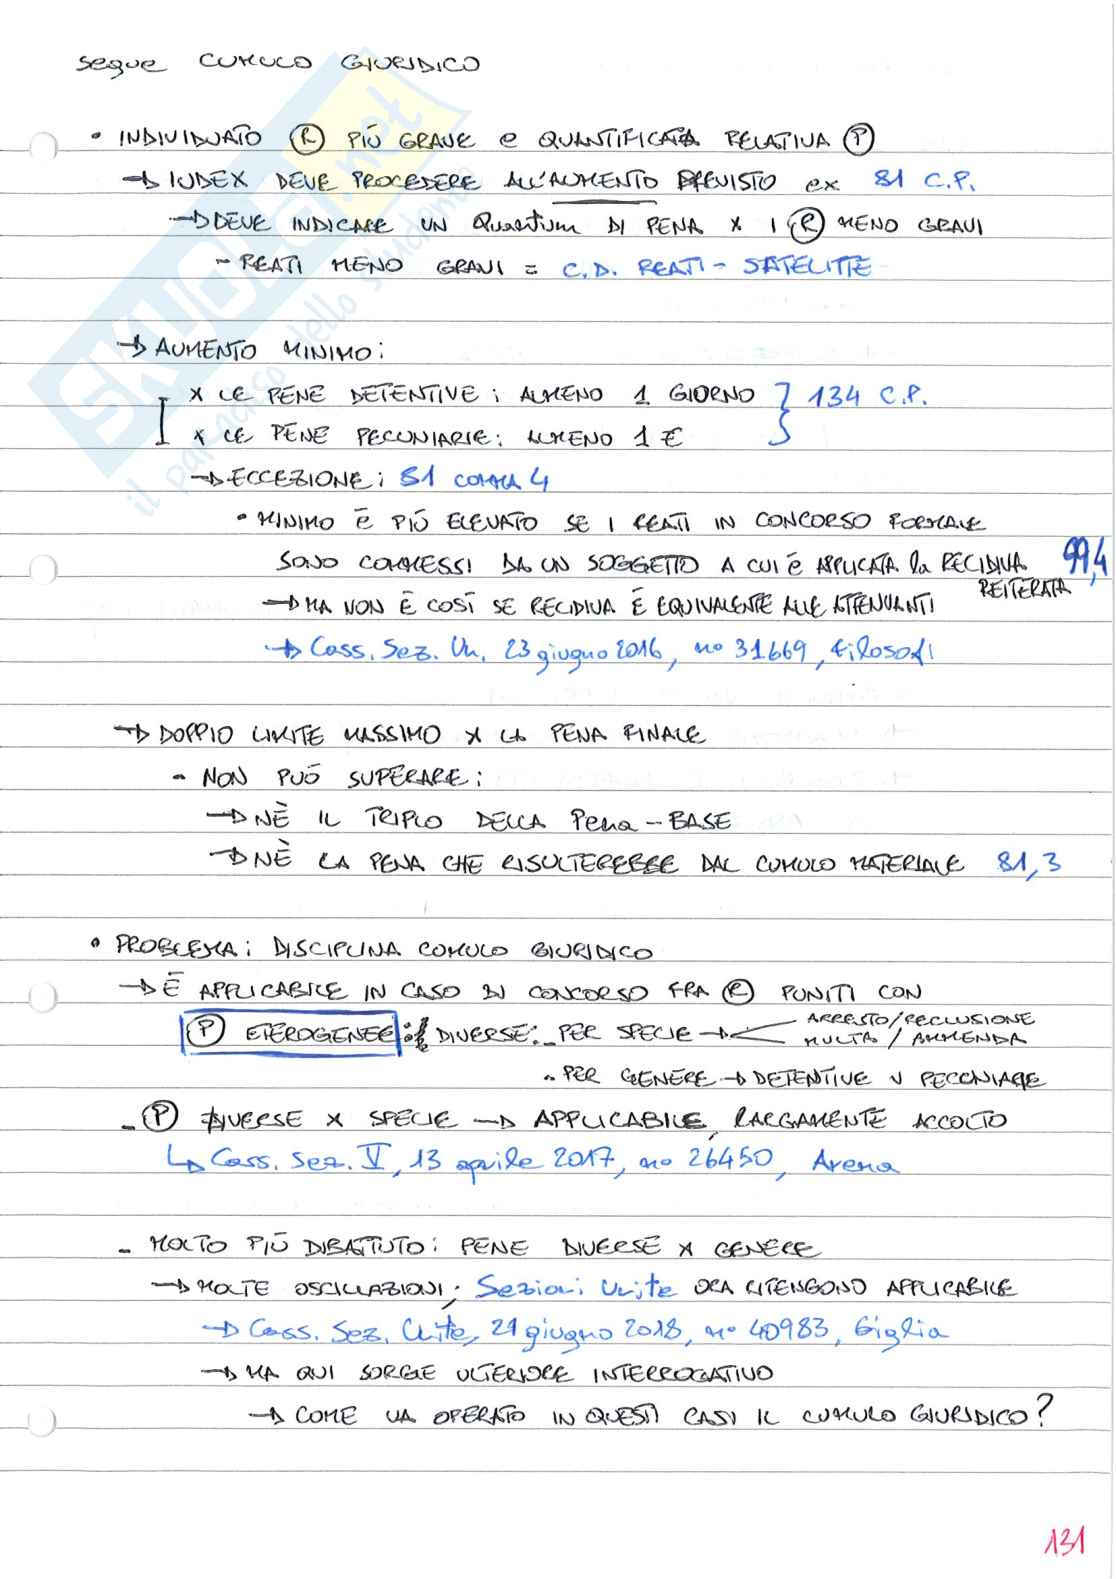 segue CUMULO GIURIDICO
• INDIVIDUATO Ⓡ PIÙ GRAVE e QUANTIFICATA RELATIVA Ⓟ
→ IUDEX DEVE PROCEDERE ALL'AUMENTO PREVISTO ex 81 C.P.
→ DEVE INDICARE UN Quantum DI PENA x I Ⓡ MENO GRAVI
- REATI MENO GRAVI = C.D. REATI-SATELITTE
→ AUMENTO MINIMO:
x LE PENE DETENTIVE: ALMENO 1 GIORNO } 134 C.P.
x LE PENE PECUNIARIE: ALMENO 1 €
→ ECCEZIONE: 81 COMMA 4
• MINIMO È PIÙ ELEVATO SE I REATI IN CONCORSO FORMALE
SONO COMMESSI DA UN SOGGETTO A CUI È APPLICATA la RECIDIVA 99,4
REITERATA
→ MA NON È COSÌ SE RECIDIVA È EQUIVALENTE ALLE ATTENUANTI
→ Cass. Sez. Un. 23 giugno 2016, no 31669, Filosofi
→ DOPPIO LIMITE MASSIMO x LA PENA FINALE
- NON PUÒ SUPERARE:
→ NÈ IL TRIPLO DELLA Pena-BASE
→ NÈ LA PENA CHE RISULTEREBBE DAL CUMULO MATERIALE 81,3
• PROBLEMA: DISCIPLINA COMULO GIURIDICO
→ È APPLICABILE IN CASO DI CONCORSO FRA Ⓡ PUNITI CON
Ⓟ ETEROGENEE: DIVERSE: - PER SPECIE → ARRESTO/RECLUSIONE
MULTA / AMMENDA
- PER GENERE → DETENTIVE V PECUNIARIE
- Ⓟ DIVERSE x SPECIE → APPLICABILE, LARGAMENTE ACCOLTO
↳ Cass. Sez. V, 13 aprile 2017, no 26450, Arena
- MOLTO PIÙ DIBATTUTO: PENE DIVERSE x GENERE
→ MOLTE OSCILLAZIONI; Sezioni Unite ORA RITENGONO APPLICABILE
→ Cass. Sez. Unite, 21 giugno 2018, no 40983, Giglia
→ MA QUI SORGE ULTERIORE INTERROGATIVO
→ COME VA OPERATO IN QUESTI CASI IL CUMULO GIURIDICO?
131
SKUOLA.net
il paradiso dello studente